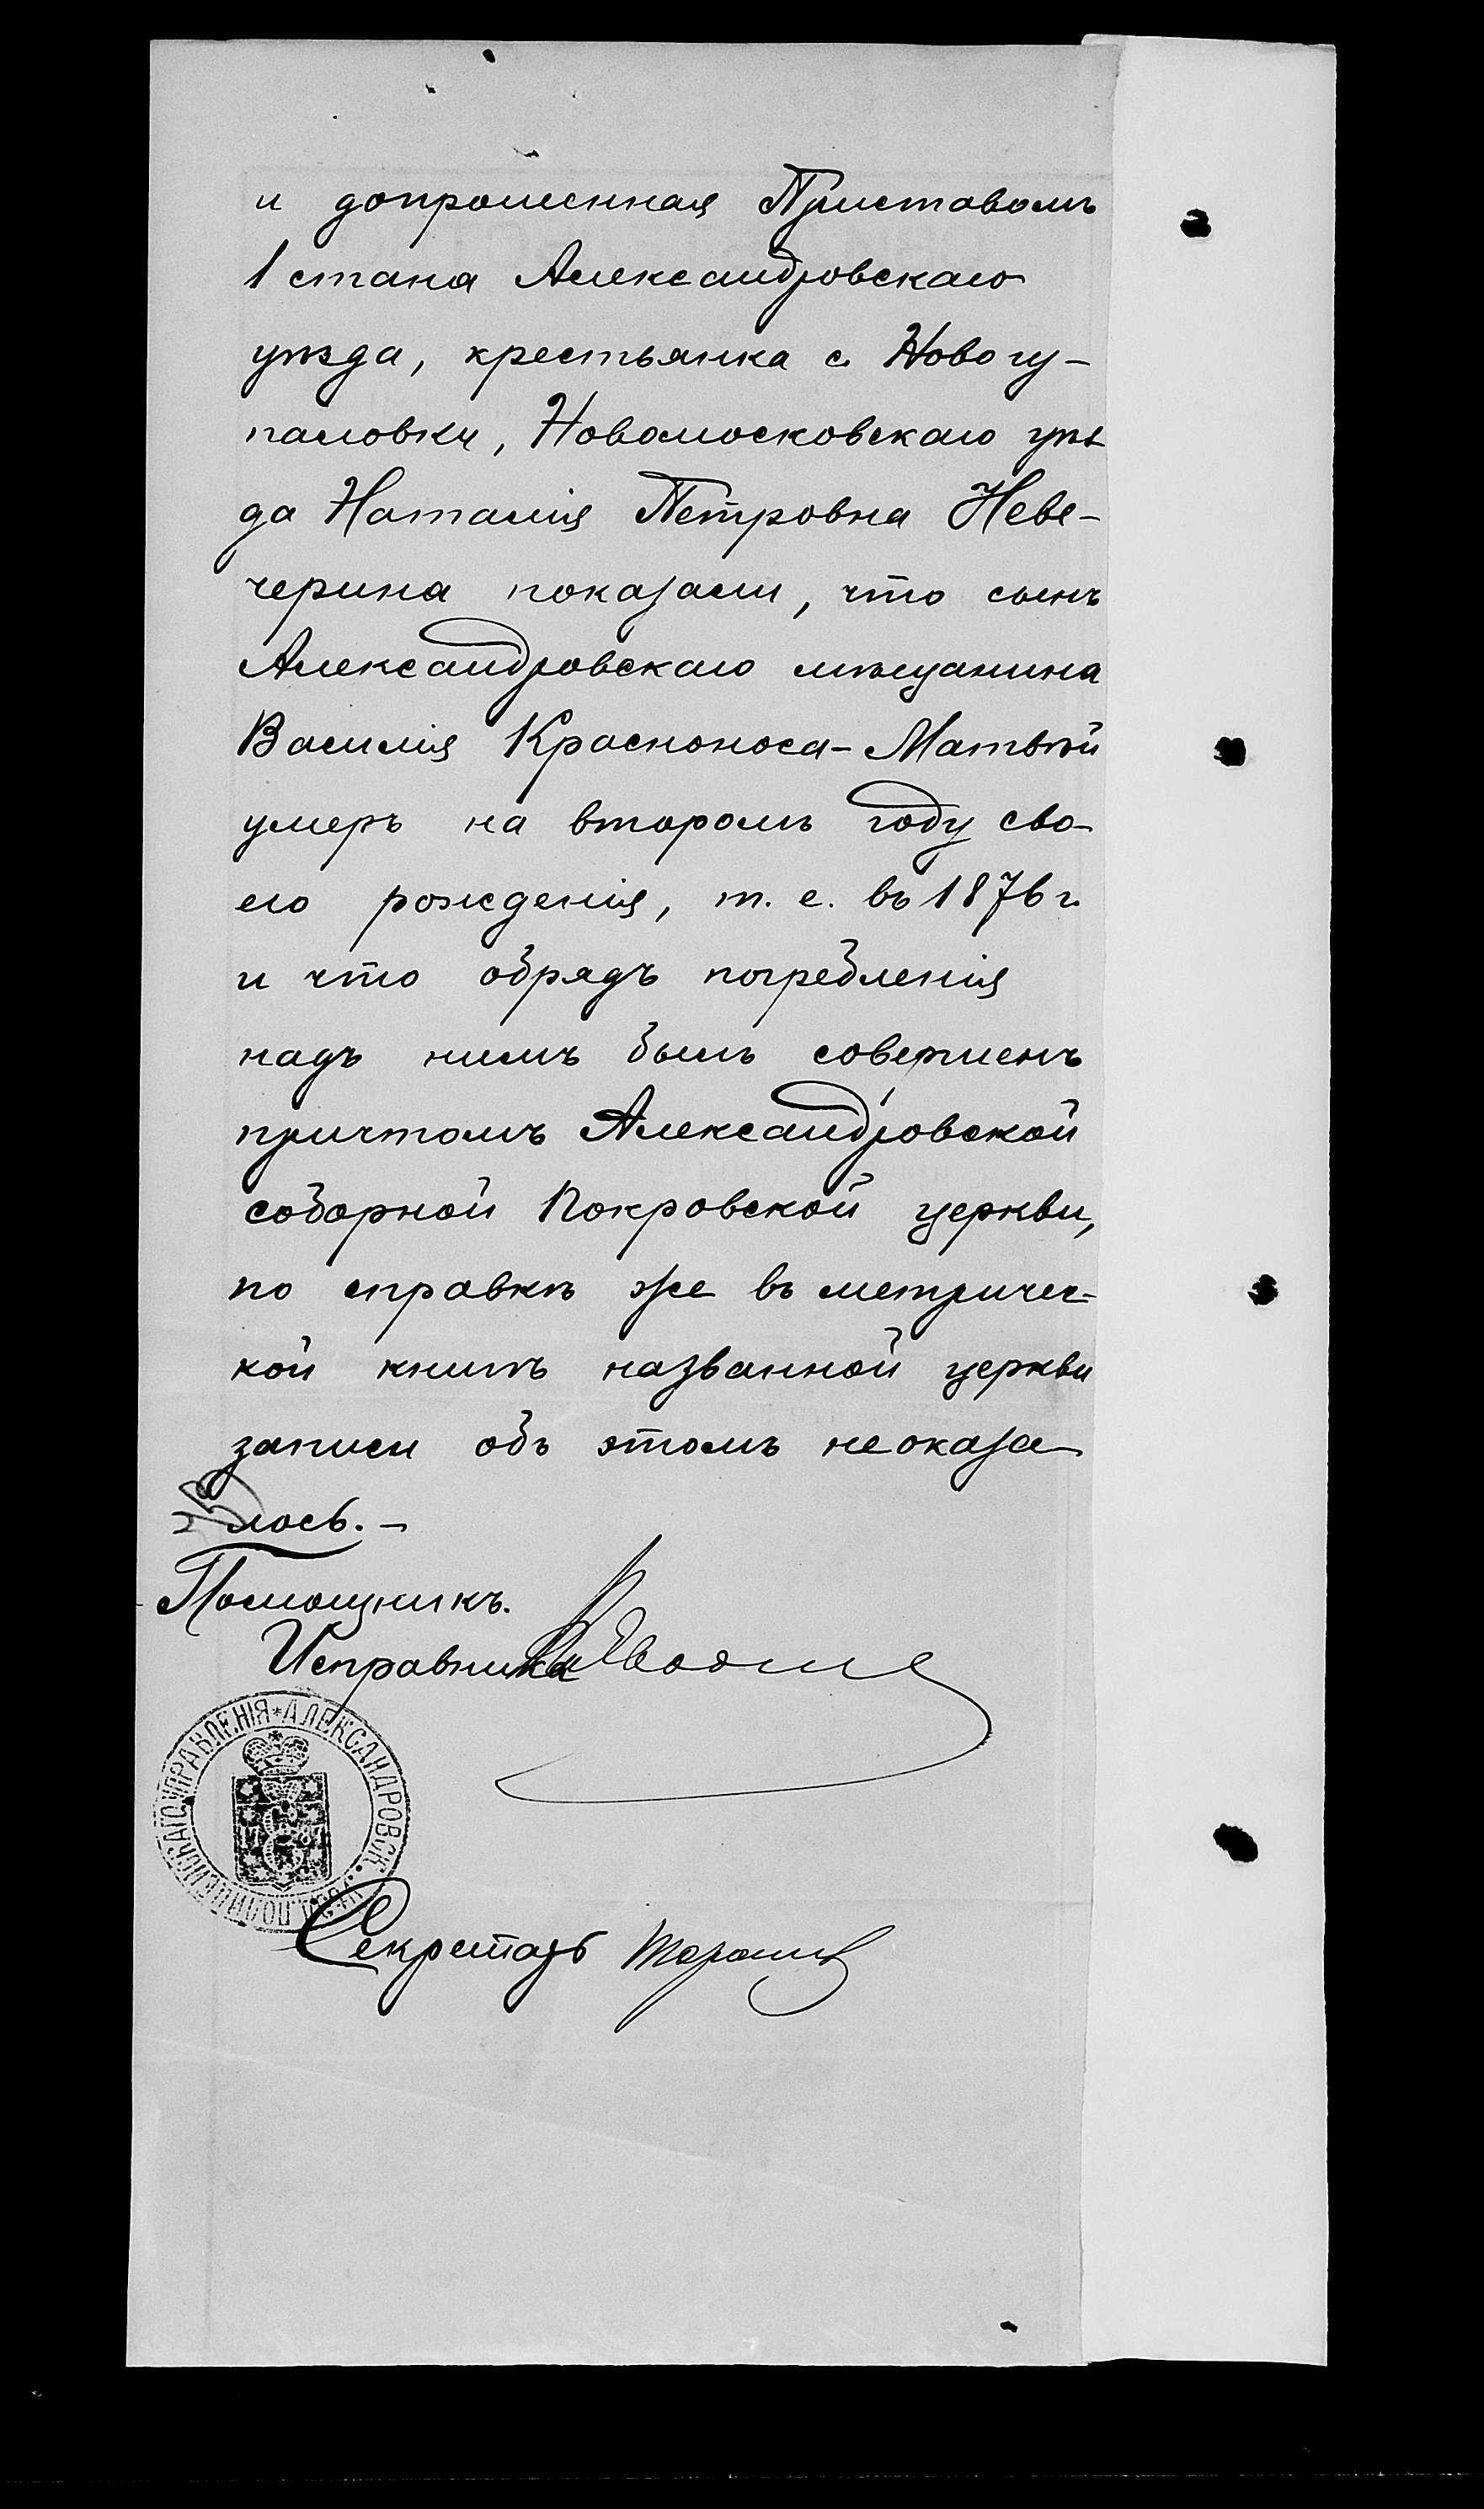 и допрошенная Приставомъ
1 стана Александровскаго
уѣзда, крестьянка с. Новогу-
паловки, Новомосковскаго уѣз
да Наталія Петровна Неве-
черина показали, что сынъ
Александровскаго мѣщанина
Василія Красноноса - Матвѣй
умеръ на второмъ году сво-
его рожденія, т. е. въ 1876 г.
и что обрядъ погребленія
надъ нимъ былъ совершенъ
причтомъ Александровской
соборной Покровской церкви,
по справкѣ же въ метричес-
кой книгѣ названной церкви
записи объ этомъ не оказа-
лось. -
Помощникъ.
Исправника
АЛЕКСАНДРОВСК. УѢЗД. ПОЛИЦЕЙСКАГО УПРАВЛЕНІЯ *
Секретарь